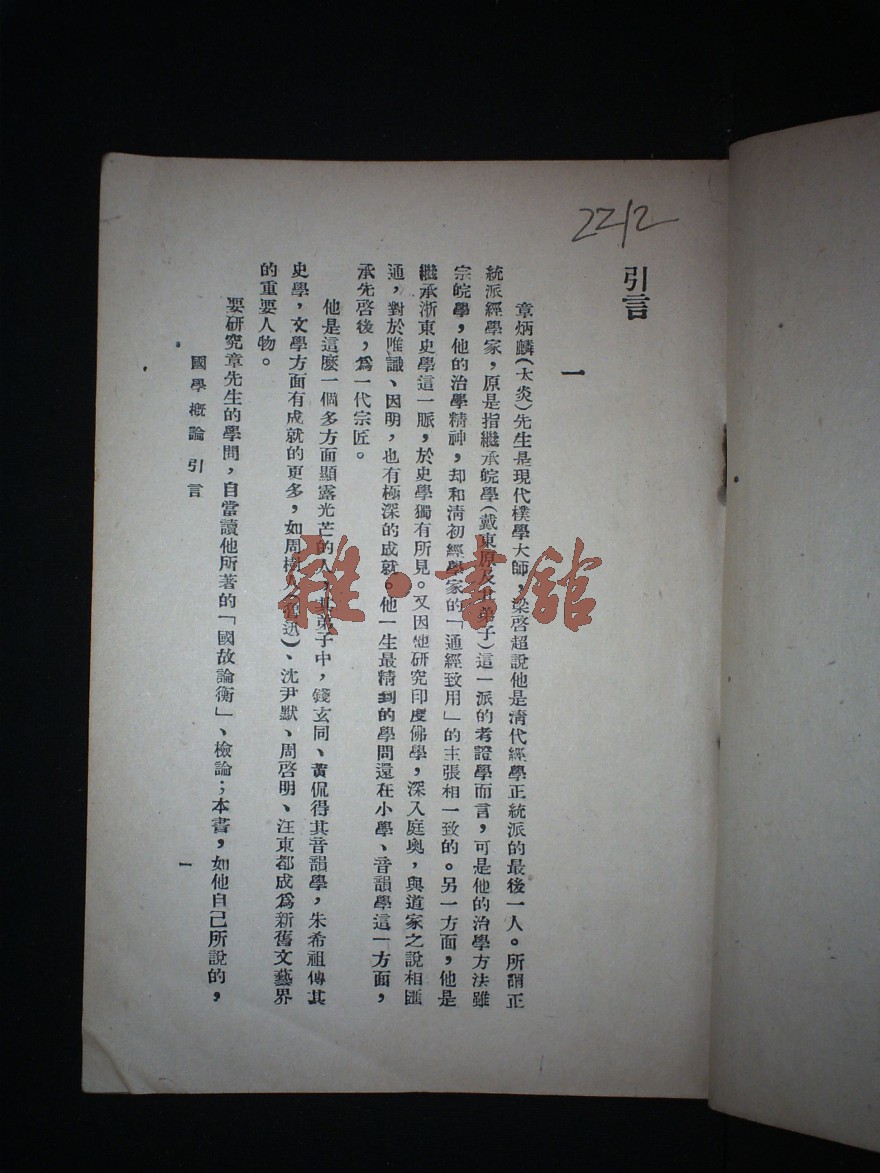 2212
引言
一
章炳麟(太炎)先生是現代樸學大師,梁啓超說他是清代經學正統派的最後一人。所謂正
統派經學家,原是指繼承皖學(戴東原及其弟子)這一派的考證學而言,可是他的治學方法雖
宗皖學,他的治學精神,却和清初經學家的「通經致用」的主張相一致的。另一方面,他是
繼承浙東史學這一脈,於史學獨有所見。又因他研究印度佛學,深入庭奥,與道家之說相匯
通,對於唯識、因明,也有極深的成就。他一生最精到的學問還在小學、音韻學這一方面,
承先啓後,爲一代宗匠。
他是這麽一個多方面顯露光芒的人,其弟子中,錢玄同、黃侃得其音韻學,朱希祖傳其
史學,文學方面有成就的更多,如周樹人(魯迅)、沈尹默、周啓明、汪東都成爲新舊文藝界
的重要人物。
要研究章先生的學問,自當讀他所著的「國故論衡」、檢論;本書,如他自己所說的,
國學概論 引言
一
雜·書館